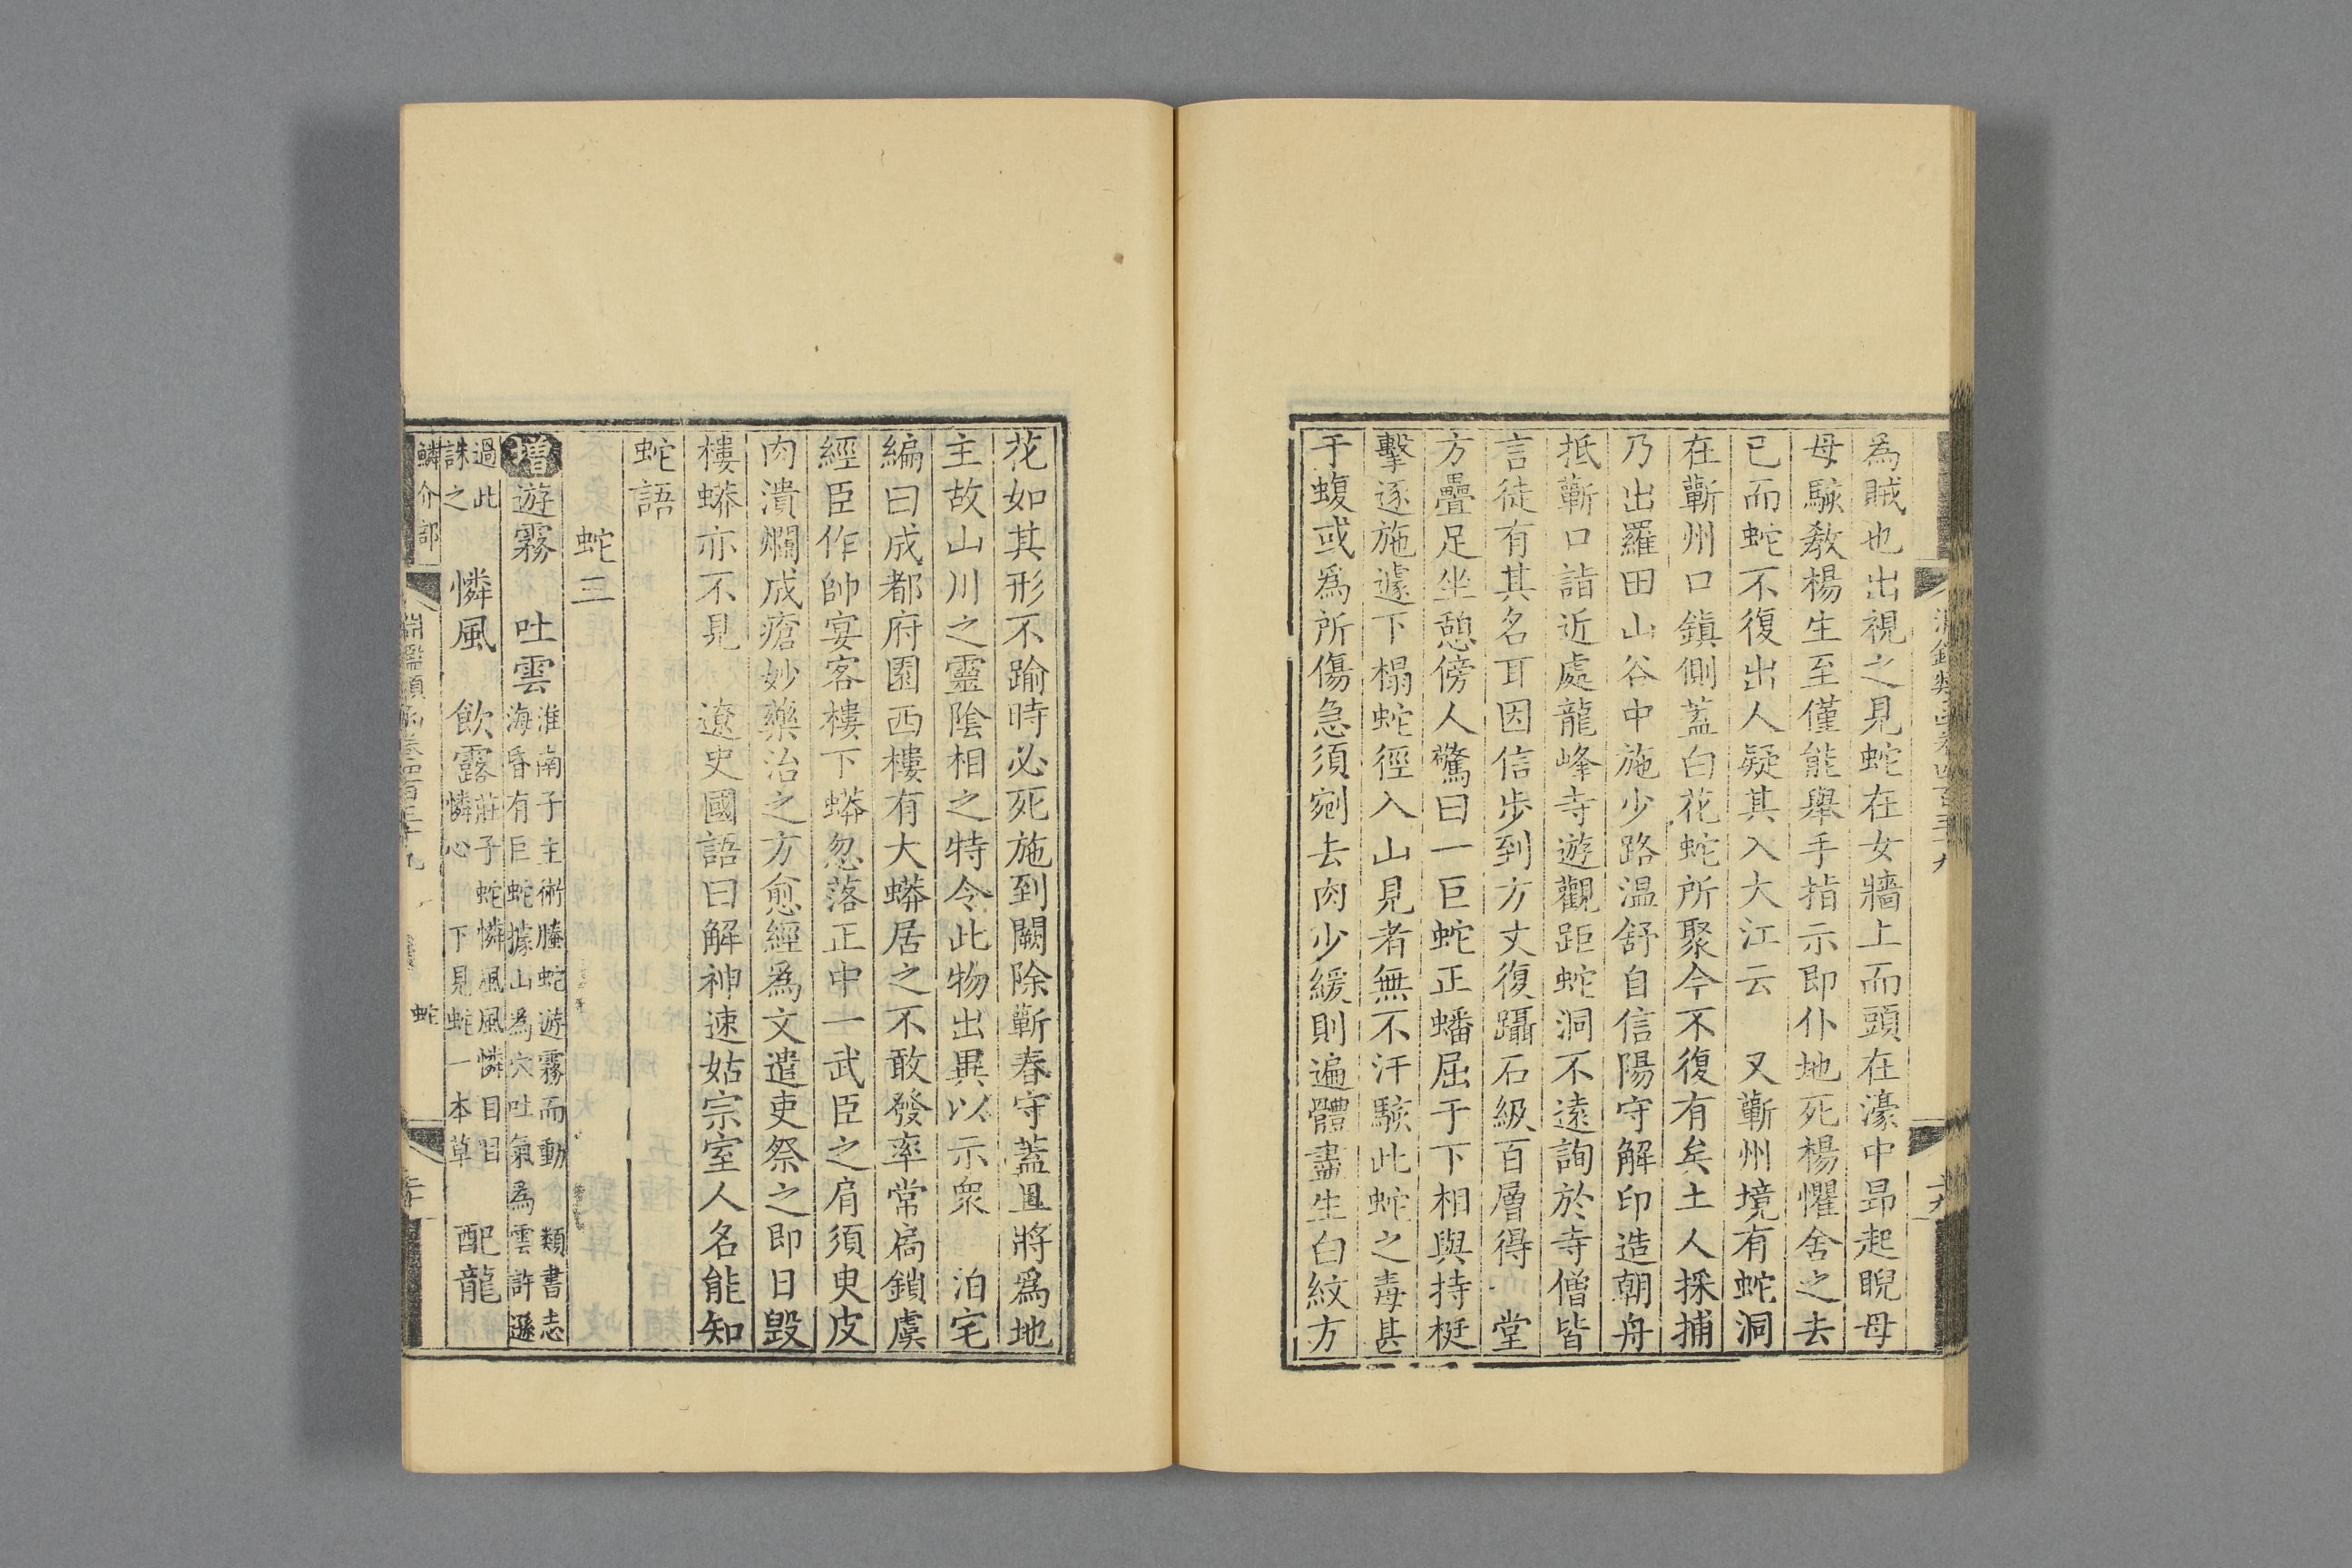 為賊也出視之見蛇在女牆上而頭在濠中昂起睨母
母駭教楊生至僅能舉手指示即仆地死楊懼舍之去
已而蛇不復出人疑其入大江云　又蘄州境有蛇洞
在蘄州口鎮側蓋白花蛇所聚今不復有矣土人採捕
乃出羅田山谷中施少路温舒自信陽守解印造朝舟
抵蘄口詣近處龍峰寺遊觀距蛇洞不遠詢於寺僧皆
言徒有其名耳因信步到方丈復躡石級百層得一堂
方疊足坐憩傍人驚曰一巨蛇正蟠屈于下相與持梃
擊逐施遽下榻蛇徑入山見者無不汗駭此蛇之毒甚
于蝮或爲所傷急須剜去肉少緩則遍體盡生白紋方
花如其形不踰時必死施到闕除蘄春守蓋且將爲地
主故山川之靈陰相之特令此物出異以示衆　泊宅
編曰成都府園西樓有大蟒居之不敢發率常扃鎖虞
經臣作帥宴客樓下蟒忽落正中一武臣之肩須臾皮
肉潰爛成瘡妙藥治之方愈經爲文遣吏祭之即日毀
樓蟒亦不見　遼史國語曰解神速姑宗室人名能知
蛇語
蛇三
增遊霧　吐雲淮南子主術螣蛇遊霧而動　類書志
海昏有巨蛇據山為穴吐氣為雲許遜
過此
誅之　憐風　飲露莊子蛇憐風風憐目目
憐心　下見蛇一本草　配龍
鱗介部　淵鑑類函卷四百三十九　蛇